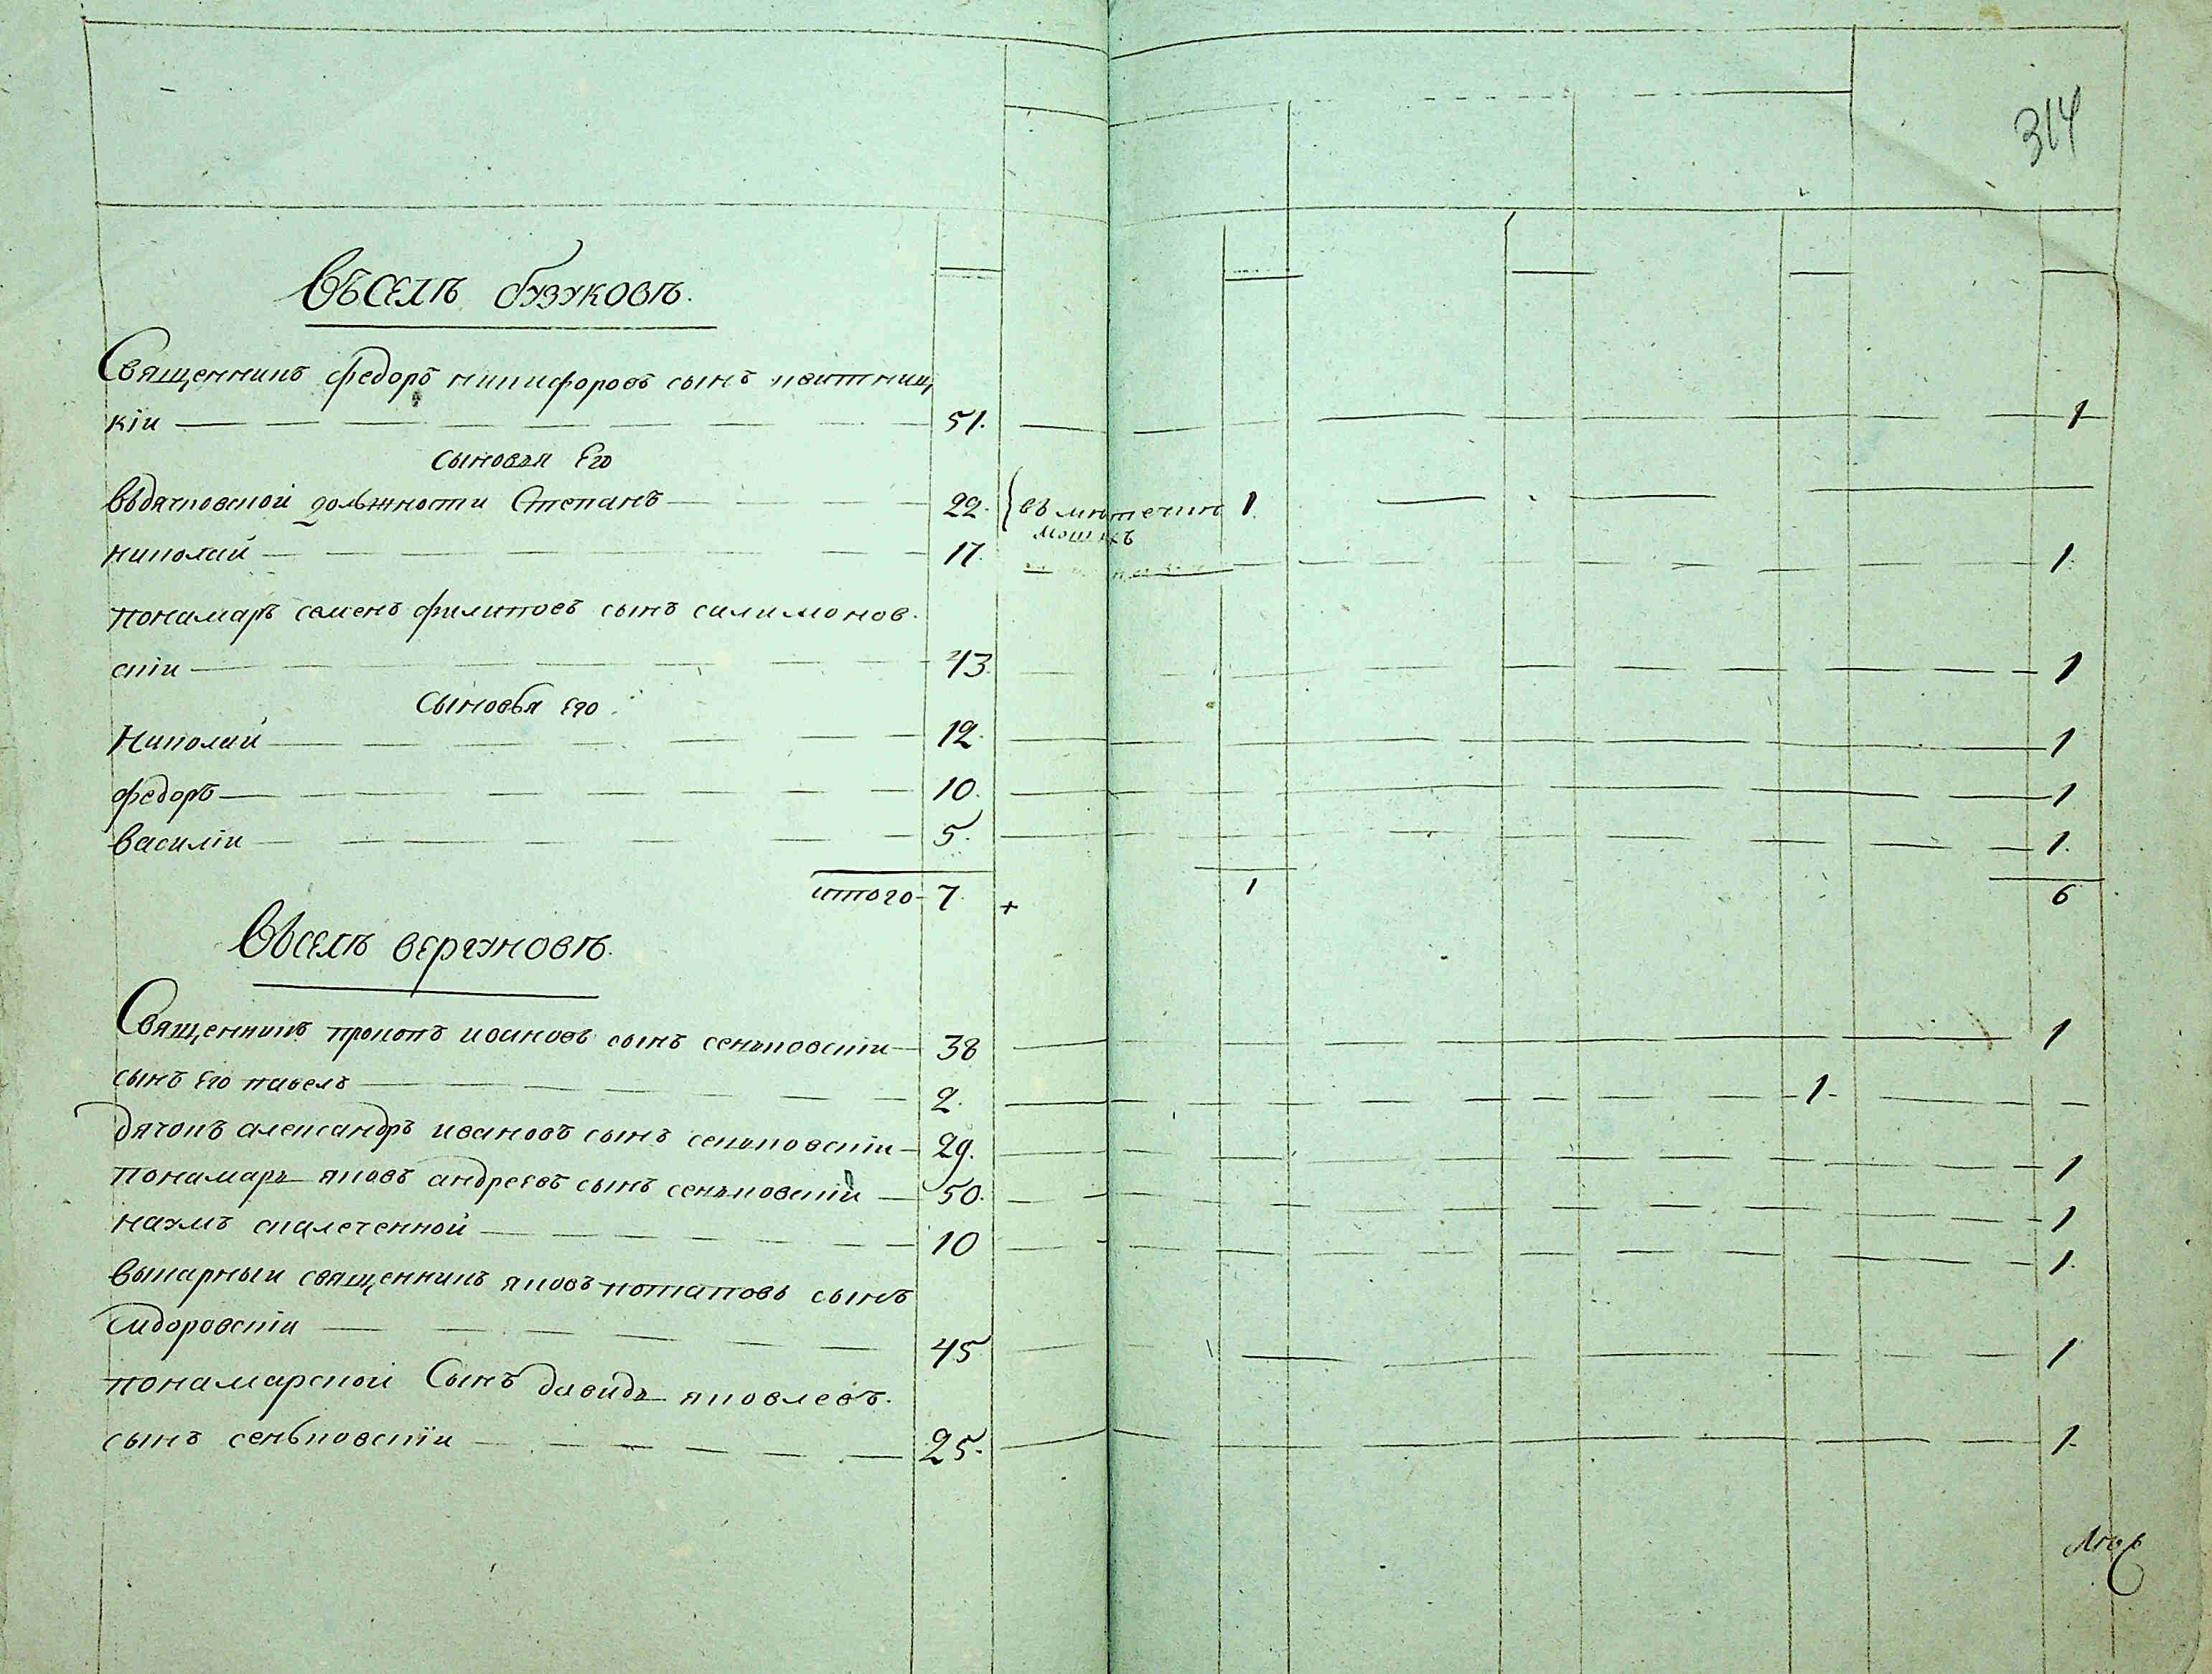 314
Въселѣ бузуковѣ.
Священникъ федоръ никифоровъ сынъ квитниц
кіи 51. 1
сыновья Его
Вдячковской должности Степанъ 22. въ мѣстечкѣ 1
мошнахъ
николай 17. 1.
пономаръ семенъ филиповъ сынъ салимонов.
скіи 43. 1
Сыновья его
Николай 12. 1
федоръ 10. 1
василіи 5. 1.
итого 7. + 1 6
Вселѣ вергуновѣ.
Священникъ прокопъ ивановъ сынъ сеньковскіи 38 1
сынъ Его павелъ 2. 1
дячокъ александръ ивановъ сынъ сеньковскіи 29. 1
пономаръ яковъ андреевъ сынъ сеньковскіи 50. 1
наумъ скалеченной 10 1.
викарныи священникъ яковъ потаповъ сынъ
Сидоровскіи 45 1
пономарской Сынъ давидъ яковлевъ.
сынъ сеньковскіи 25. 1.